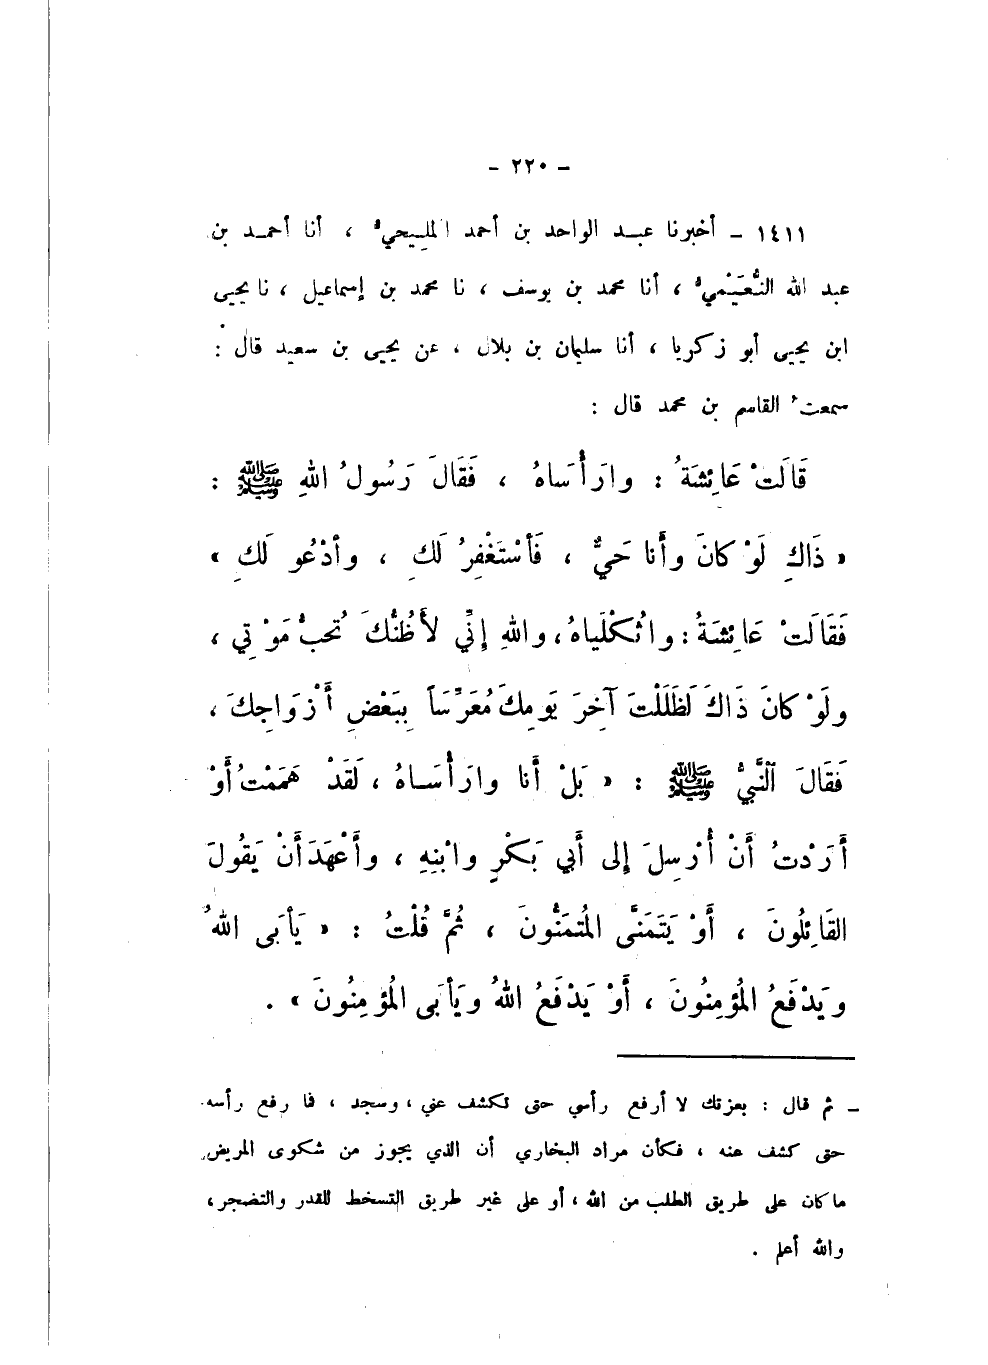 - ٢٢٠ -
١٤١١ - أخبرنا عبد الواحد بن أحمد المليحيُّ ، أنا أحمد بن
عبد الله النُّعَيْميُّ ، أنا محمد بن يوسف ، نا محمد بن إسماعيل ، نا يحيى
ابن يحيى أبو زكريا ، أنا سليمان بن بلال ، عن يحيى بن سعيد قال :
سمعتُ القاسم بن محمد قال :
قَالَتْ عَائِشَةُ : وارَأْسَاهُ ، فَقَالَ رَسُولُ اللهِ ﷺ :
« ذَاكِ لَوْ كانَ وأَنا حَيٌّ ، فَأَسْتَغْفِرُ لَكِ ، وأدْعُو لَكِ »
فَقَالَتْ عَائِشَةُ : واثُكْلَياهُ ، واللهِ إنِّي لأَظُنُّكَ تُحبُّ مَوْتِي ،
ولَوْ كانَ ذَاكَ لَظَلَلْتَ آخِرَ يَومِكَ مُعَرِّسَاً بِبَعْضِ أَزْوَاجِكَ ،
فَقَالَ ٱلنَّبيُّ ﷺ : « بَلْ أَنا وارَأْسَاهُ ، لَقَدْ هَمَمْتُ أَوْ
أَرَدْتُ أَنْ أُرْسِلَ إلى أَبي بَكْرٍ وابْنِهِ ، وأَعْهَدَ أَنْ يَقُولَ
القَائِلُونَ ، أَوْ يَتَمَنَّى المُتمَنُّونَ ، ثُمَّ قُلْتُ : « يَأبَى اللهُ
ويَدْفَعُ المُؤمِنُونَ ، أَوْ يَدْفَعُ اللهُ ويَأبَى المُؤمِنُونَ » .
- ثم قال : بعزتك لا أرفع رأسي حتى تكشف عني ، وسجد ، فما رفع رأسه
حتى كشف عنه ، فكأن مراد البخاري أن الذي يجوز من شكوى المريض
ما كان على طريق الطلب من الله ، أو على غير طريق التسخط للقدر والتضجر ،
والله أعلم .